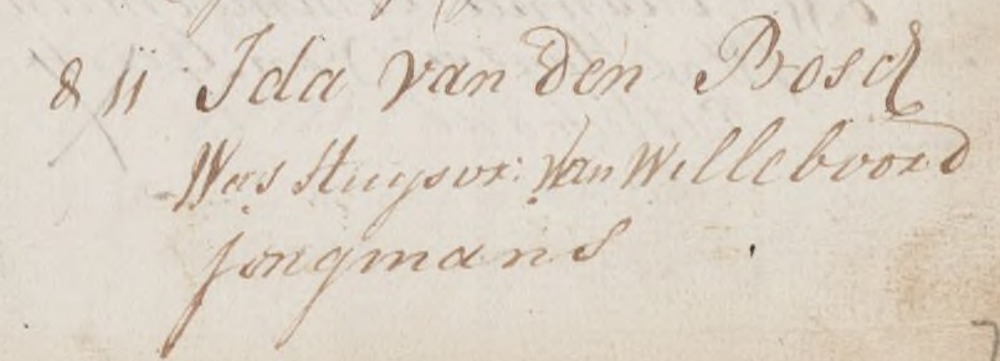 8 11 Ida van den Bosch
Was Huysvr: van Willeboord
jongmans